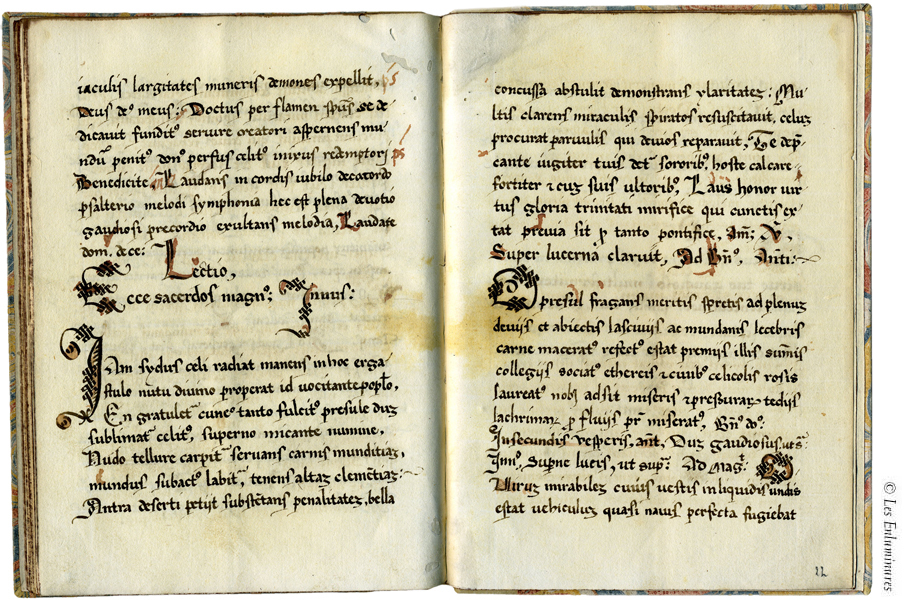 iaculis largitates muneris demones expellit, ps
Deus de⁹ meus: Doctus per flamen spūs se de
dicauit fundit⁹ seruire creatori aspernens mu
ndū penit⁹ don⁹ perfus⁹ celit⁹ inixus redemptori ps
Benedicite Laudans in cordis iubilo decacordo
psalterio melodi symphonia hec est plena deuotio
gaudiosi precordio exultans melodia, Laudate
dom. de ce:
Lectio,
Ecce sacerdos magn⁹; Ymnus:
Iam sydus celi radiat manens in hoc erga
stulo nutu diuino properat id vocitante poplo,
En gratulet cunc⁹ tanto fulcit⁹ presule duz
sublimat celit⁹, superno micante numine,
Nudo tellure carpit seruans carnis munditiaz,
mundus subact⁹ labit, tenens altaz clemētiaz:
Antra deserti petijt substētans penalitatez, bella
concussa abstulit demonstrans ylaritatez: Mu
ltis clarens miraculis spiritos resuscitauit, celuz
procurat paruulis qui deuios reparauit, Te dep̄
cante iugiter tuis det sororib⁹ hoste calcare
fortiter & cuz suis ultorib⁹, Laus honor uir
tus gloria trinitati mirifice qui cunctis ex
tat preuia sit p tanto pontifice, Am̄; V.
Super lucerna claruit, Ad Bn̄⁹. Anti:
O presul fragans meritis spretis ad plenuz
deuijs et abiectis lasciuijs ac mundanis lecebris
carne macerat⁹ refect⁹ estat premijs illis sum̄is
collegijs sociat⁹ ethereis & ciuib⁹ celicolis rosis
laureat⁹ nobis adsit miseris & pressurar tedijs
lachrimar p fluijs pr̄ miserat⁹, Bn̄⁹ do⁹:
In secundis vesperis, ant, Duz gaudiosus, ut sᵃ
Ymn⁹, Supne lucis, ut supᵃ: Ad Mag: O
Viruz mirabilez cuius vestis in liquidis undis
estat uehiculuz quasi nauis perfecta fugiebat
22
© Les Enluminures